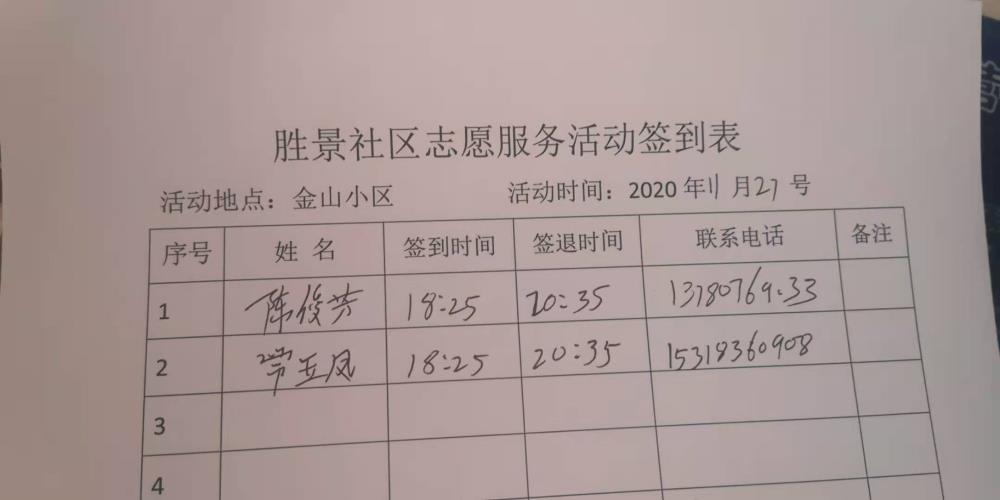 胜景社区志愿服务活动签到表
活动地点：金山小区 活动时间：2020 年 11 月 27 号
序号 姓 名 签到时间 签退时间 联系电话 备注
1 陈俊芳 18:25 20:35
2 常亚凤 18:25 20:35 15318360908
3
4